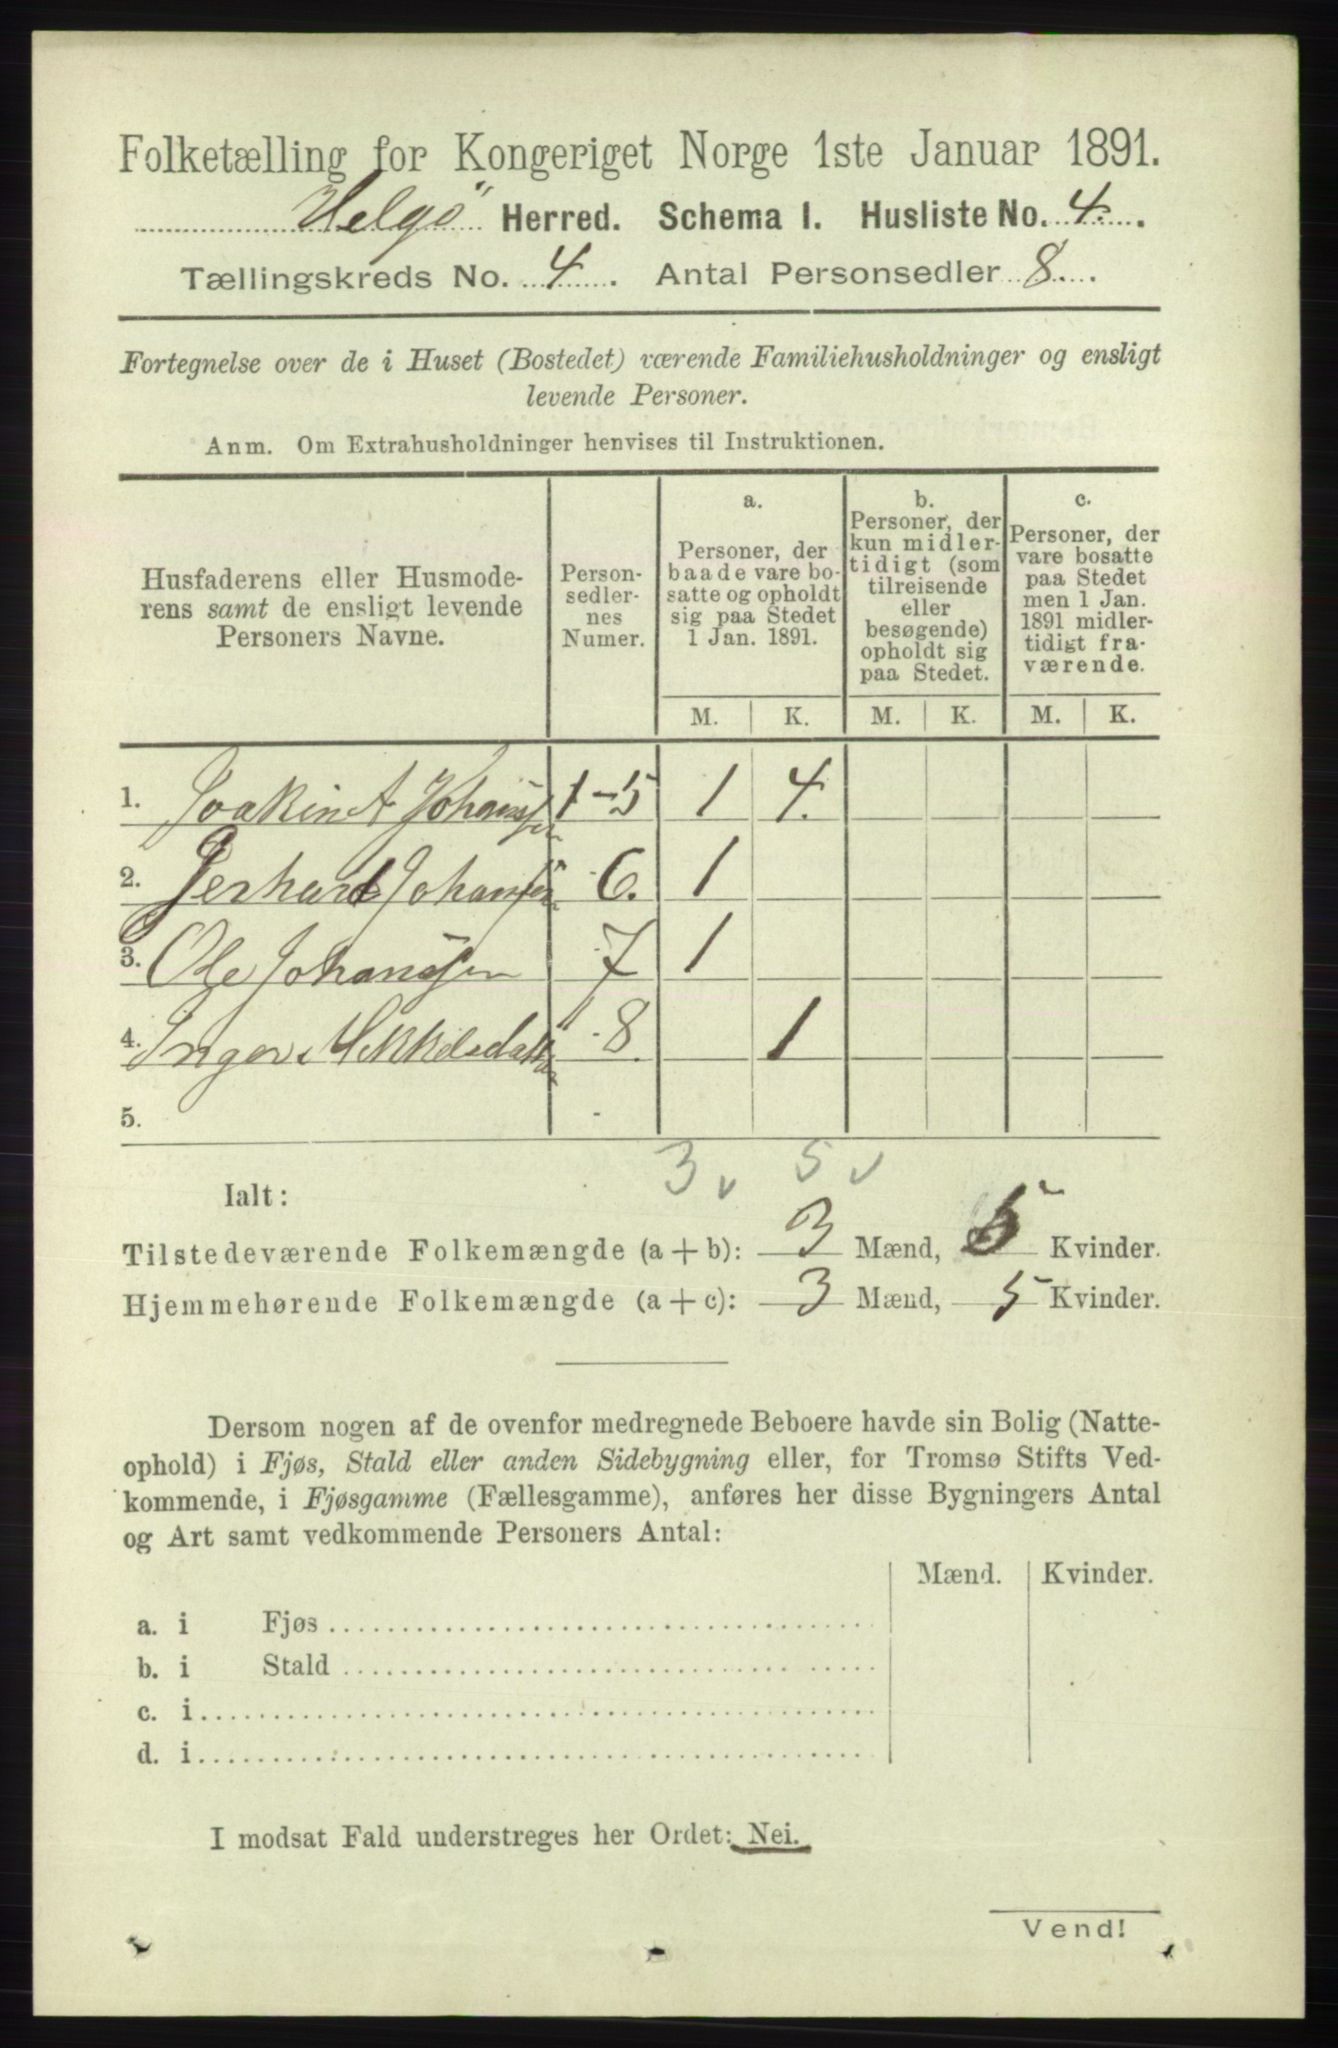 Folketælling for Kongeriget Norge 1ste Januar 1891.
Helgö Herred. Schema 1. Husliste No. 4.
Tællingskreds No. 4. Antal Personsedler 8.
Fortegnelse over de i Huset (Bostedet) værende Familiehusholdninger og ensligt
levende Personer.
Anm. Om Extrahusholdninger henvises til Instruktionen.
Husfaderens eller Husmode-
rens samt de ensligt levende
Personers Navne.
Person-
sedler-
nes
Numer.
a.
Personer, der
baade vare bo-
satte og opholdt
sig paa Stedet
1 Jan. 1891.
b.
Personer, der
kun midler-
tidigt (som
tilreisende
eller
besøgende)
opholdt sig
paa Stedet.
c.
Personer, der
vare bosatte
paa Stedet
men 1 Jan.
1891 midler-
tidigt fra-
værende.
M. K. M. K. M. K.
1. Joakin A Johanssen 1-5 1 4.
2. Gerhard Johanssen 6. 1
3. Ole Johanssen 7 1
4. Inger Mikkelsdatter 8. 1
5.
3 v 5 v
Ialt:
Tilstedeværende Folkemængde (a+b): 3 Mænd, 5 Kvinder.
Hjemmehørende Folkemængde (a+c): 3 Mænd, 5 Kvinder.
Dersom nogen af de ovenfor medregnede Beboere havde sin Bolig (Natte-
ophold) i Fjøs, Stald eller anden Sidebygning eller, for Tromsø Stifts Ved-
kommende, i Fjøsgamme (Fællesgamme), anføres her disse Bygningers Antal
og Art samt vedkommende Personers Antal:
Mænd. Kvinder.
a. i Fjøs
b. i Stald
c. i
d. i
I modsat Fald understreges her Ordet: Nei.
Vend!